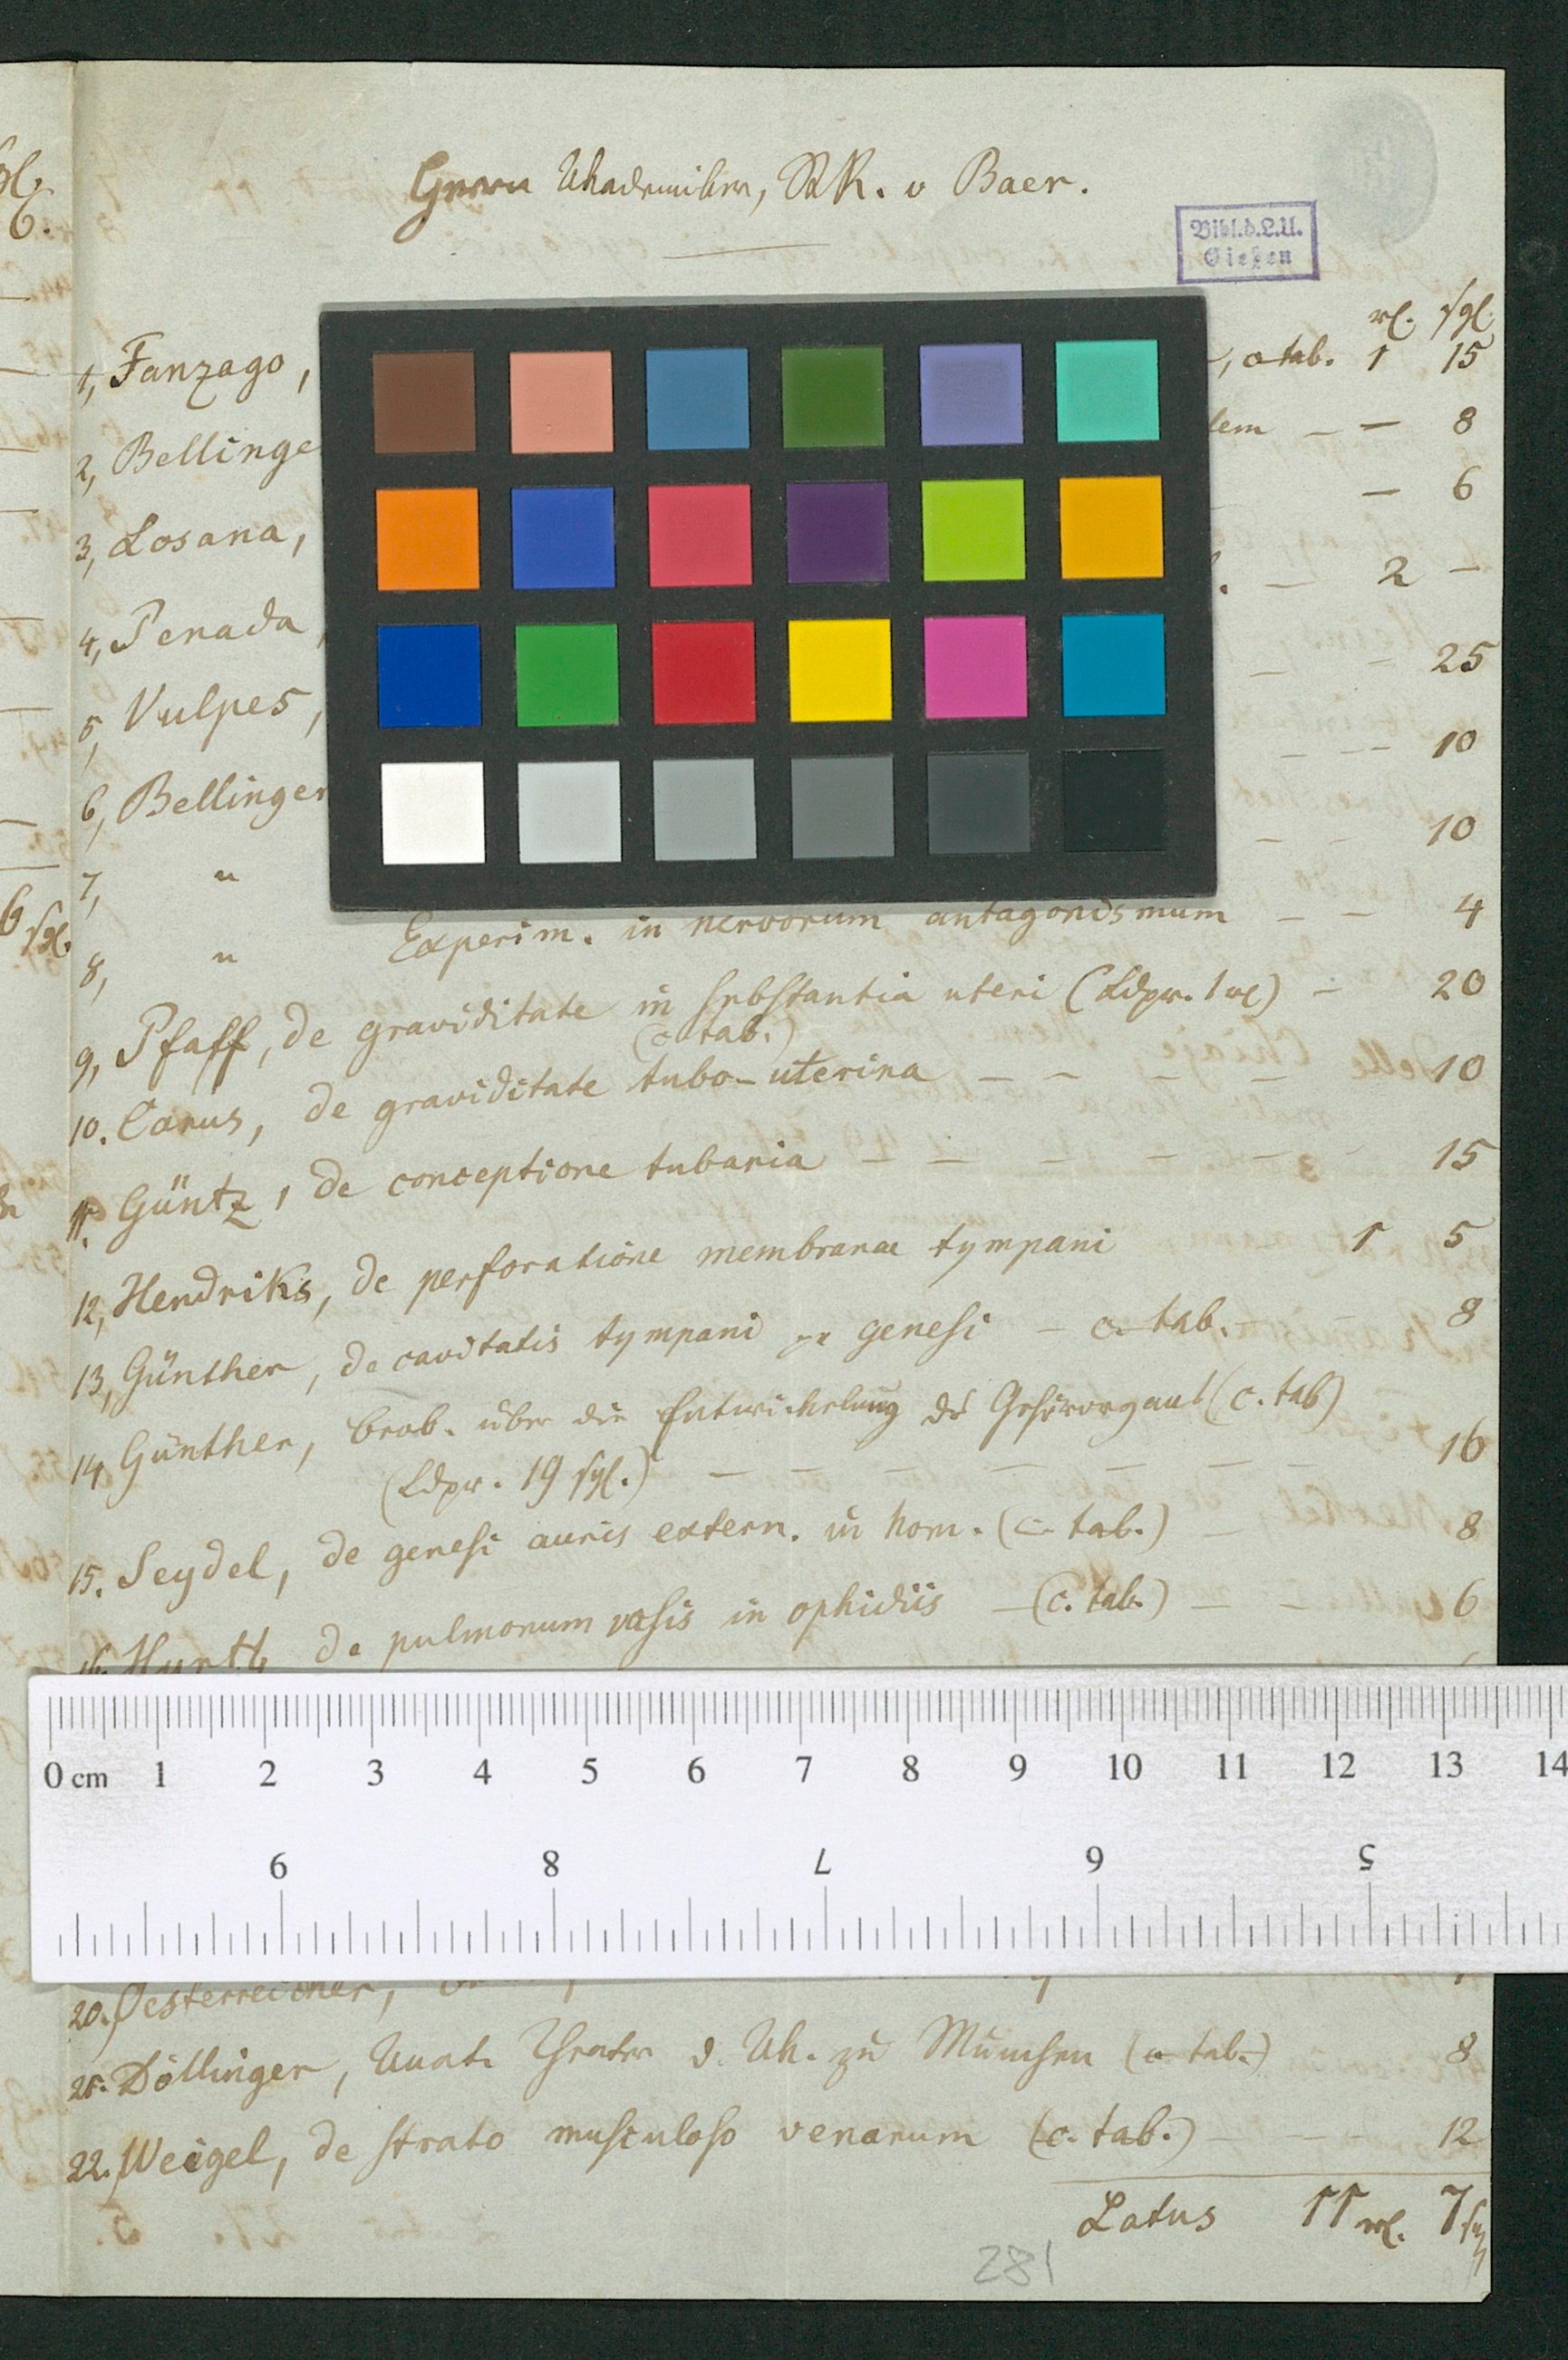 Herrn Akademiker, StR. v Baer.
Bibl.d.L.U.
Gießen
rl. sgl.
1, Fanzago, , c tab. 1 15
2, Bellinge lem – – 8
3, Losana, – 6
4, Penada, – 2 –
5, Vulpes, – – 25
6, Bellinger – – – 10
7, " – – 10
8, " Experim. in nervorum antagonismum – – 4
9, Pfaff, de graviditate in substantia uteri (Ldpr. 1 rl) – 20
(c tab.)
10. Carus, de graviditate tubo-uterina – – – – 10
11. Güntz, de conceptione tubaria – – – – – 15
12, Hendriks, de perforatione membranae tympani 1 5
13, Günther, de cavitatis tympani genesi – c. tab. – – 8
14, Günther, Beob. über die Entwickelung des Gehörorgans (c. tab)
(Ldpr. 19 sgl.) – – – – – – – – 16
15. Seydel, de genesi auris extern. in hom. (c. tab.) – 8
16. Hyrtl, de pulmonum vasis in ophidiis – (c. tab.) – – 6
0 cm 1 2 3 4 5 6 7 8 9 10 11 12 13 14
9 8 7 6 5
20. Oesterreicher,
21. Döllinger, Anat. Theater d. Ak. zu München (c tab.) 8
22. Weigel, de strato musculoso venarum (c. tab.) – – – 12
Latus 11 rl. 7 sgl
281